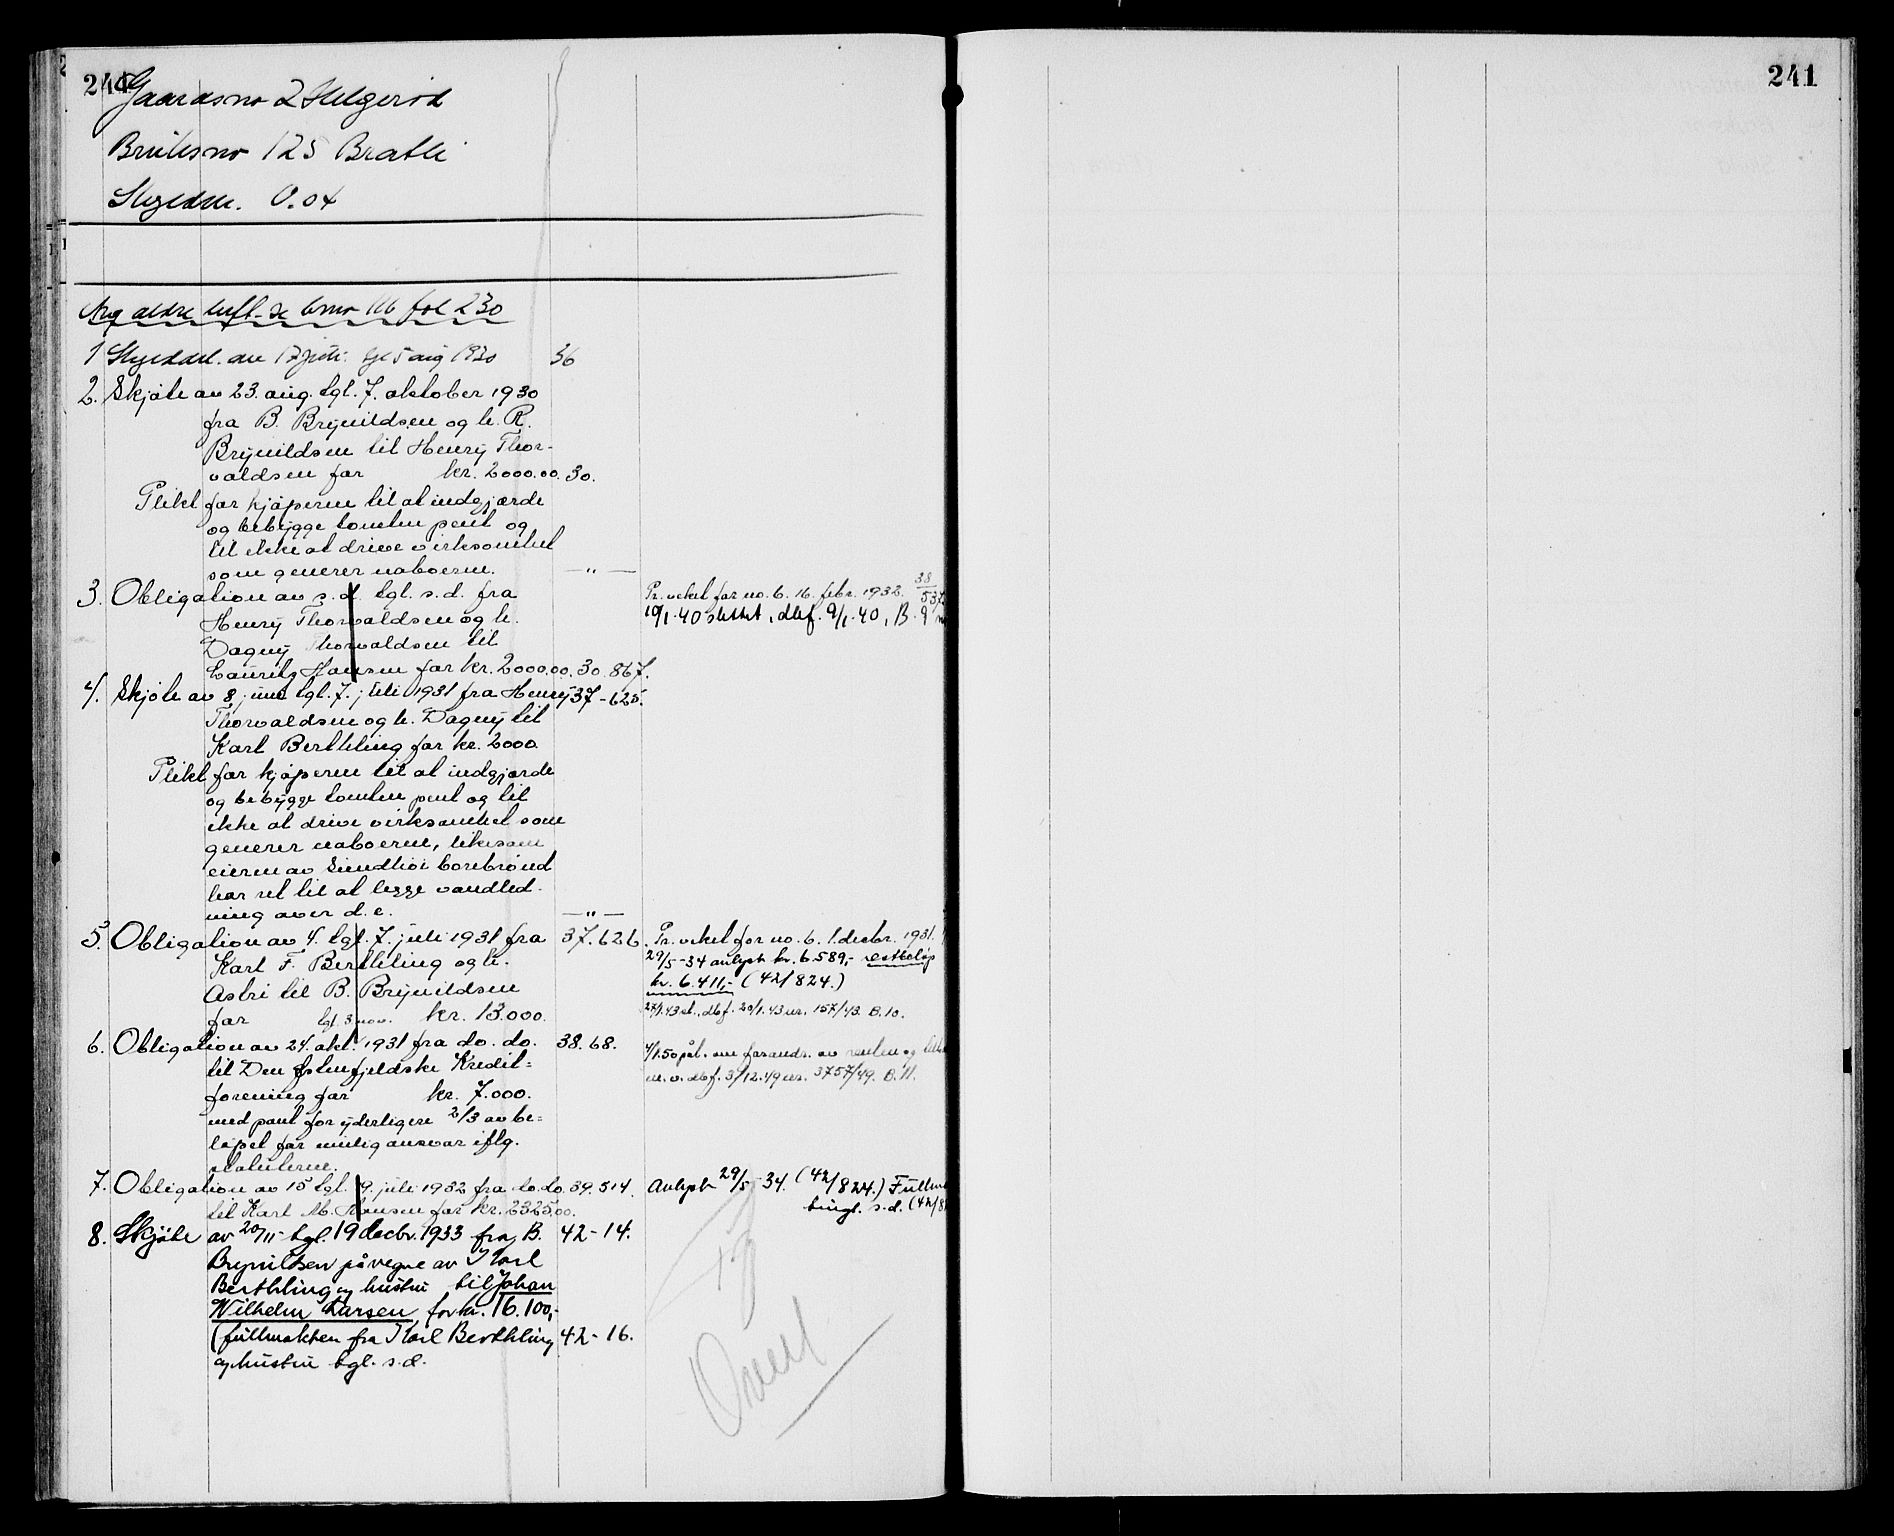 241
Gaardsno 2 Helgerød
Bruksno 125 Bratli
Skyldm. 0.04
Ang ældre heft. se bno 116 fol 230
1 Skylddel. av 17 juli tgl 5 aug 1930 36
2. Skjøte av 23. aug. tgl. 7. oktober 1930
fra B. Brynildsen og h. R.
Brynildsen til Henry Thor-
valdsen for kr. 2000.00. 30.
Plikt for kjøperen til at indgjærde
og bebygge tomten pent og
til ikke at drive virksomhet
som generer naboerne. — " —
3. Obligation av s.d. tgl. s.d. fra
Henry Thorvaldsen og h.
Dagny Thorvaldsen til
Lauritz Hansen for kr. 2000.00. 30. 867.
Pr. veket for no. 6. 16. febr. 1932. 38/537
10/1.40 slettet, dbf. 9/1.40, B. 9
4. Skjøte av 8. juni tgl. 7. juli 1931 fra Henry 37-625.
Thorvaldsen og h. Dagny til
Karl Berthling for kr. 2000
Plikt for kjøperen til at indgjærde
og bebygge tomten pent og til
ikke at drive virksomhet som
generer naboerne, likesom
eieren av Sundliør borebrønd
har ret til at legge vandled-
ning over d.e. — " —
5. Obligation av 4. tgl. 7. juli 1931 fra 37. 626.
Karl F. Berthling og h.
Astri til B. Brynildsen
for kr. 13.000.
Pr. veket for no. 6. 1. decbr. 1931.
29/5-34 avlyst kr. 6589,- restbeløp
kr. 6.411,- (42/824.)
27/1.43 sl., dbf. 20/1.43 nr. 157/43. B.10.
tgl. 3 nov.
6. Obligation av 24. okt. 1931 fra do. do. 38. 68.
til Den Østenfjeldske Kredit-
forening for kr. 7.000.
med pant for yderligere 2/3 av be-
løpet for mulig ansvar iflg.
statuterne.
4/1.50 pål. om forandr. av renten og
m.v. dbf. 3/12.49 nr. 3757/49. B.11.
7. Obligation av 15 tgl. 9. juli 1932 fra do. do. 39. 514.
til Karl M. Hansen for kr. 2325,00.
Avlyst 29/5-34. (42/824.) Fullm
tingl. s.d. (42/8
8. Skjøte av 20/11- tgl. 19 decbr. 1933 fra B. 42-14.
Brynildsen på vegne av Karl
Berthling og hustru til Johan
Wilhelm Larsen, for kr. 16.100,-
(fullmakten fra Karl Berthling 42-16.
og hustru tgl. s.d.
Overf
241